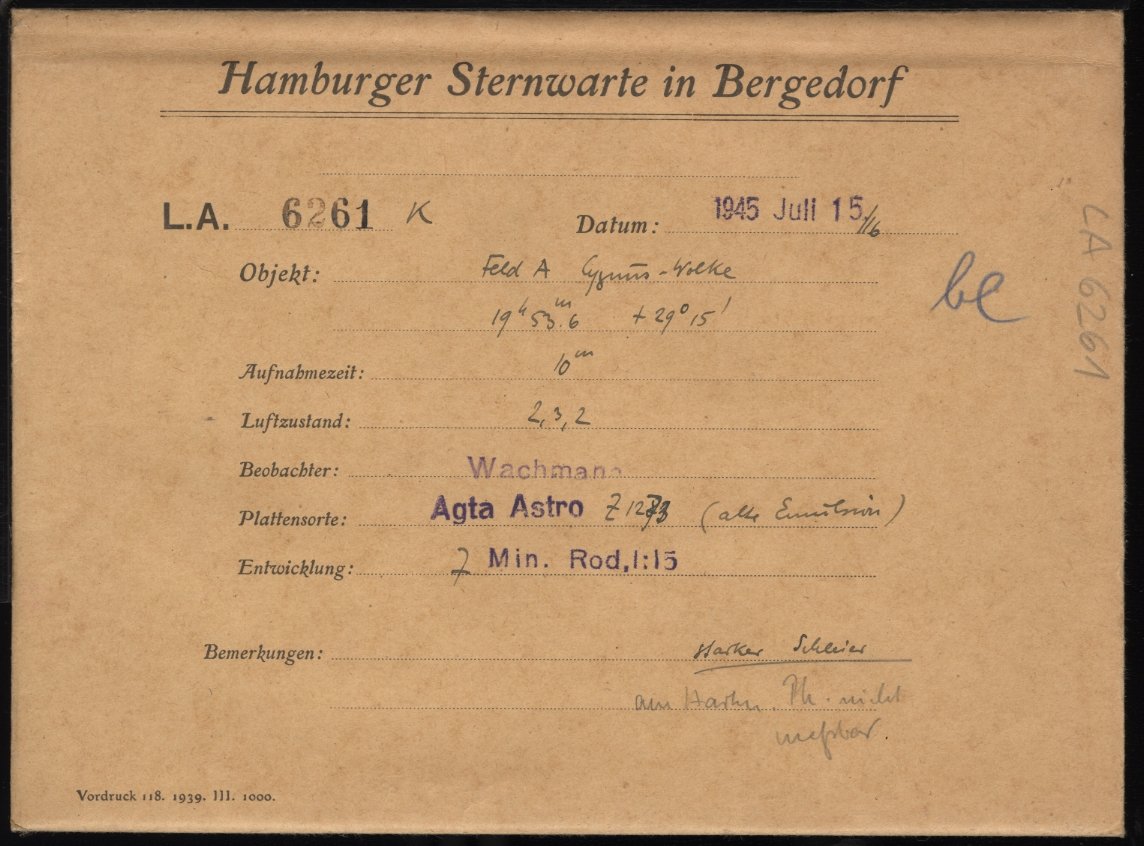 Hamburger Sternwarte in Bergedorf
L.A. 6261 K Datum: 1945 Juli 15./16
Objekt: Feld A Cygnus-Wolke
19h 53m.6 +29° 15'
Aufnahmezeit: 10m
Luftzustand: 2, 3, 2
Beobachter: Wachmann
Plattensorte: Agfa Astro Z (alte Emulsion)
Entwicklung: 7 Min. Rod. 1:15
Bemerkungen: Starker Schleier
am Hartm. Ph. nicht
meßbar.
Vordruck 118. 1939. III. 1000.
be
LA 6261